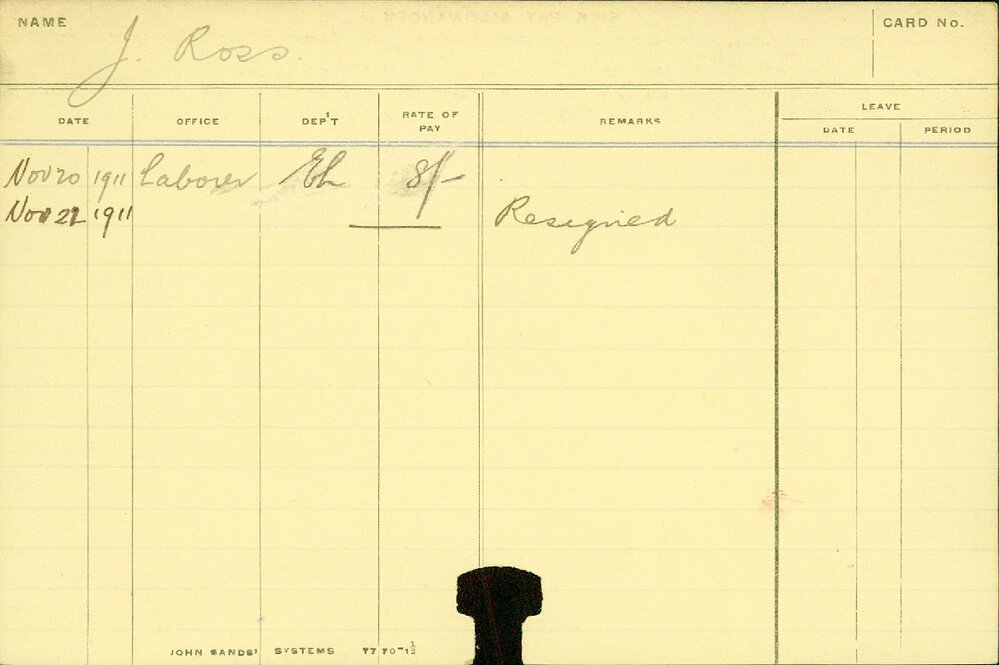 NAME J. Ross. CARD No.
DATE OFFICE DEP'T RATE OF PAY REMARKS LEAVE
DATE PERIOD
Nov 20 1911 Laborer Eh 8/-
Nov 22 1911 Resigned
JOHN SANDS' SYSTEMS 77 70-1/2